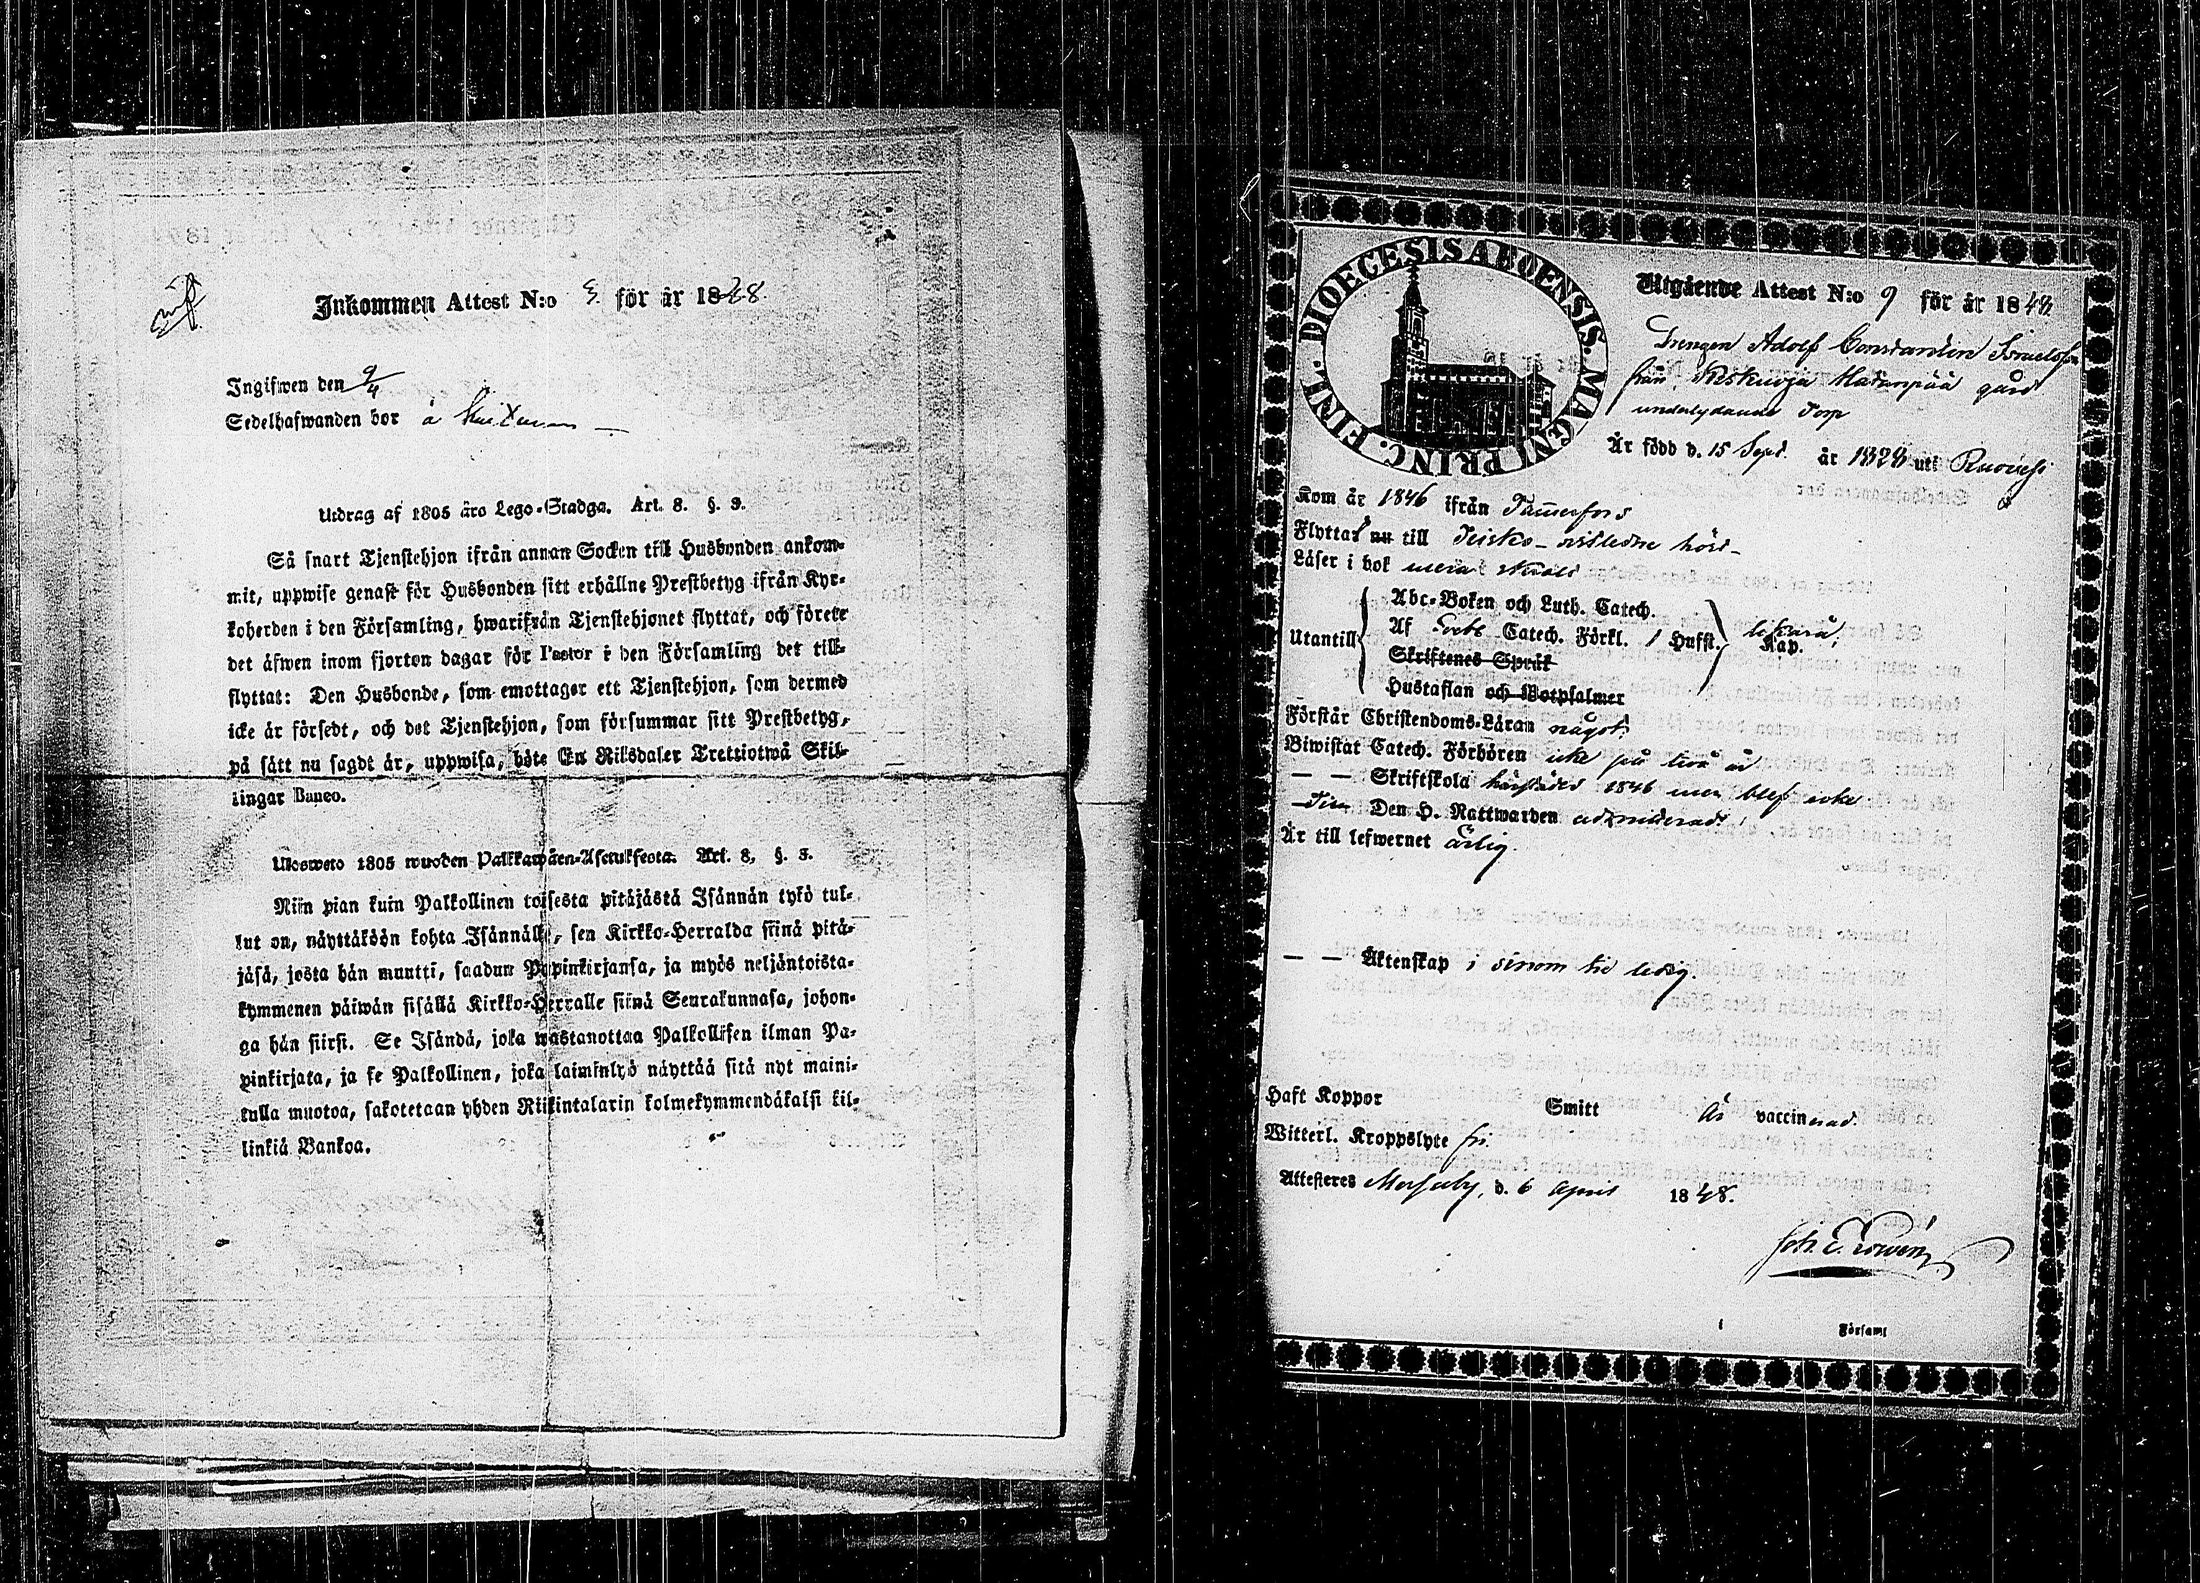 Inkommen Attest N:o 3 för år 1848.
Ingifwen den 9/4
Sedelhafwanden bor å
Utdrag af 1805 års Lego-Stadga. Art. 8. §. 3.
Så snart Tjenstehjon ifrån annan Socken till Husbonden ankom-
mit, uppwise genast för Husbonden sitt erhållne Prestbetyg ifrån Kyr-
koherden i den Församling, hwarifrån Tjenstehjonet flyttat, och förete
det äfwen inom fjorton dagar för Pastor i den Församling det till-
flyttat: Den Husbonde, som emottager ett Tjenstehjon, som dermed
icke är försedt, och det Tjenstehjon, som försummar sitt Prestbetyg,
på sätt nu sagdt är, uppwisa, böte En Riksdaler Trettiotwå Skil-
lingar Banco.
Ulosweto 1805 wuoden Palkkawäen-Asetuksesta. Art. 8. §. 3.
Niin pian kuin Palkollinen toisesta pitäjästä Isännän tykö tul-
lut on, näyttäköön kohta Isännälle, sen Kirkko-Herralda siinä pitä-
jäsä, josta hän muutti, saadun Papinkirjansa, ja myös neljäntoista-
kymmenen päiwän sisällä Kirkko-Herralle siinä Seurakunnasa, johon-
ga hän siirsi. Se Isändä, joka wastanottaa Palkollisen ilman Pa-
pinkirjata, ja se Palkollinen, joka laiminlyö näyttää sitä nyt maini-
tulla muotoa, sakotetaan yhden Riikintalarin kolmekymmendäkaksi kil-
linkiä Bankoa.
DIOECESIS ABOENSIS. MAGNI PRINC. FINL.
Utgående Attest N:o 9 för år 1848.
Drengen Adolf Constantin Israelsson
från Keskuoja Hatanpää gård
underlydande Torp
Är född d. 15 Sept. år 1828 uti Ruovesi
Kom år 1846 ifrån Tammerfors
Flyttar nu till Teisko
Läser i bok
Utantill
Abc-Boken och Luth. Catech.
Af Catech. Förkl. 1 Hufst. Kap.
Skriftenes Språk
Hustaflan och Botpsalmer
Förstår Christendoms-Läran något
Biwistat Catech. Förhören icke på två år
— — Skriftskola härstädes 1846 men blef icke
Den H. Nattwarden admitterad.
Är till lefwernet ärlig.
— — Äktenskap i sinom tid ledig.
Haft Koppor Smitt är vaccinerad.
Witterl. Kroppslyte fri.
Attesteres Messuby, d. 6 April 1848.
Församl